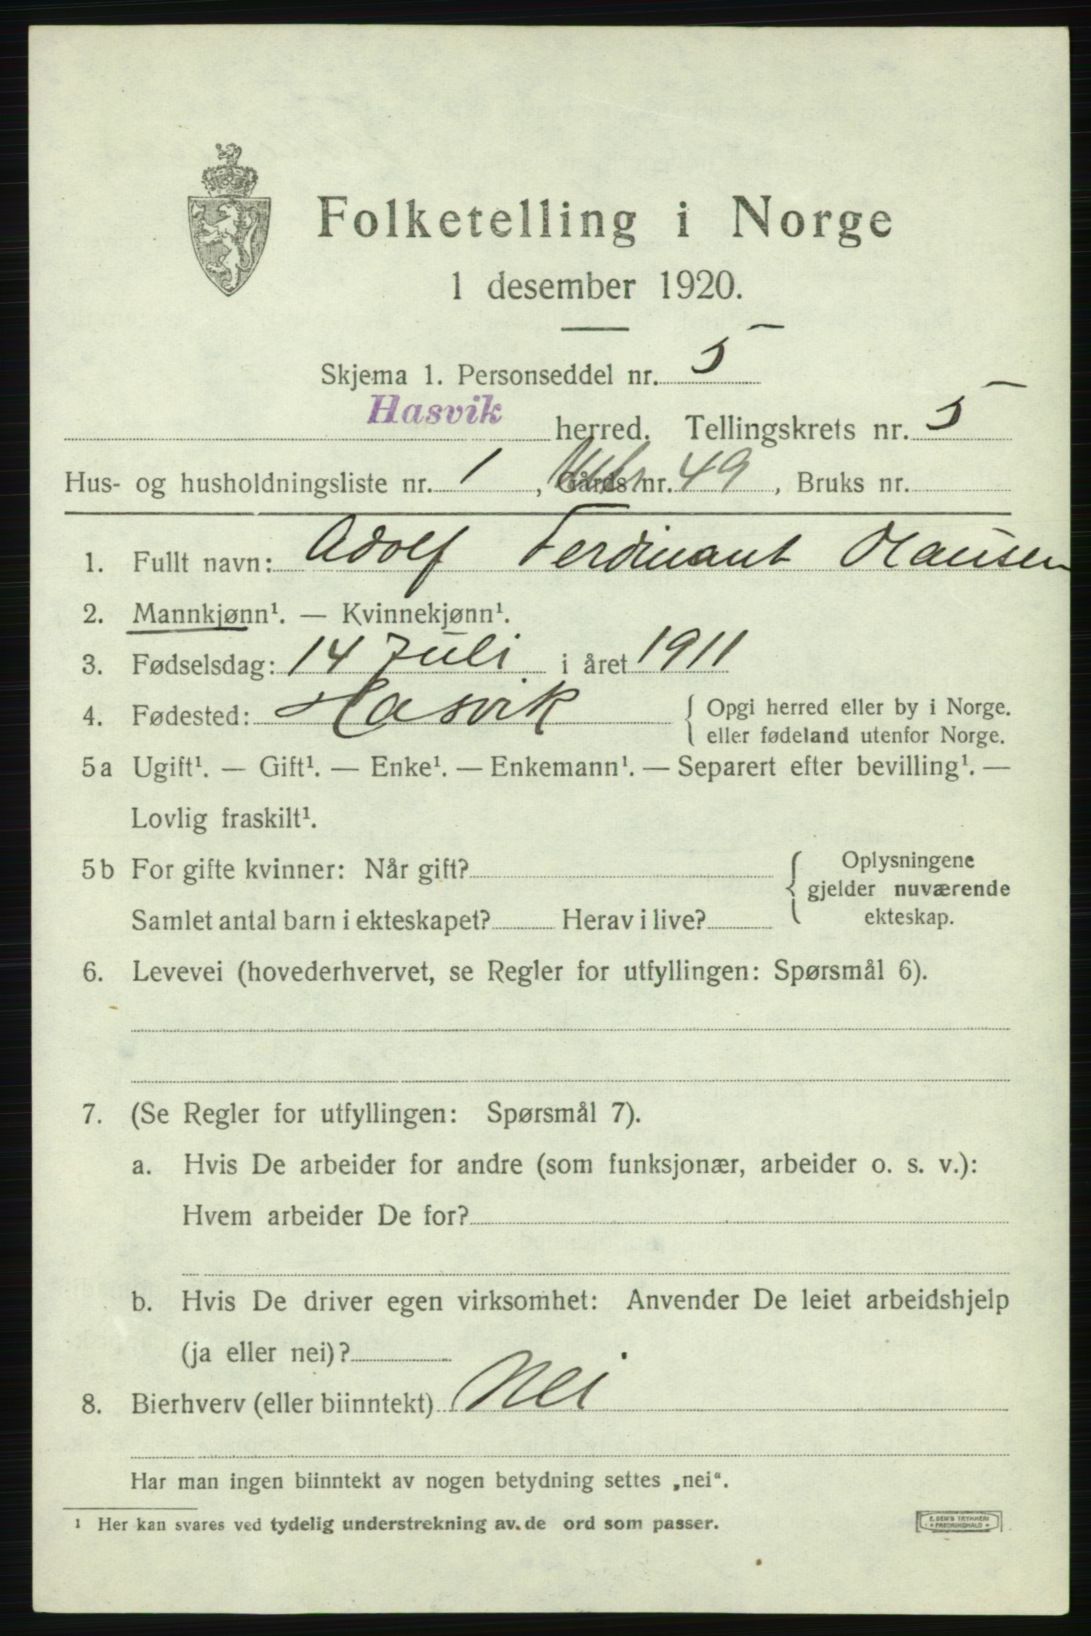 Folketelling i Norge
1 desember 1920.
Skjema 1. Personseddel nr. 5
Hasvik herred. Tellingskrets nr. 5
Hus- og husholdningsliste nr. 1, Gårds nr. 49, Bruks nr.
1. Fullt navn: Adolf Ferdinant Hansen
2. Mannkjønn¹. — Kvinnekjønn¹.
3. Fødselsdag: 14 Juli i året 1911
4. Fødested: Hasvik { Opgi herred eller by i Norge.
eller fødeland utenfor Norge.
5a Ugift¹. — Gift¹. — Enke¹. — Enkemann¹. — Separert efter bevilling¹. —
Lovlig fraskilt¹.
5b For gifte kvinner: Når gift? { Oplysningene
gjelder nuværende
Samlet antal barn i ekteskapet? Herav i live? ekteskap.
6. Levevei (hovederhvervet, se Regler for utfyllingen: Spørsmål 6).
7. (Se Regler for utfyllingen: Spørsmål 7).
a. Hvis De arbeider for andre (som funksjonær, arbeider o. s. v.):
Hvem arbeider De for?
b. Hvis De driver egen virksomhet: Anvender De leiet arbeidshjelp
(ja eller nei)?
8. Bierhverv (eller biinntekt) Nei
Har man ingen biinntekt av nogen betydning settes „nei“.
¹ Her kan svares ved tydelig understrekning av de ord som passer.